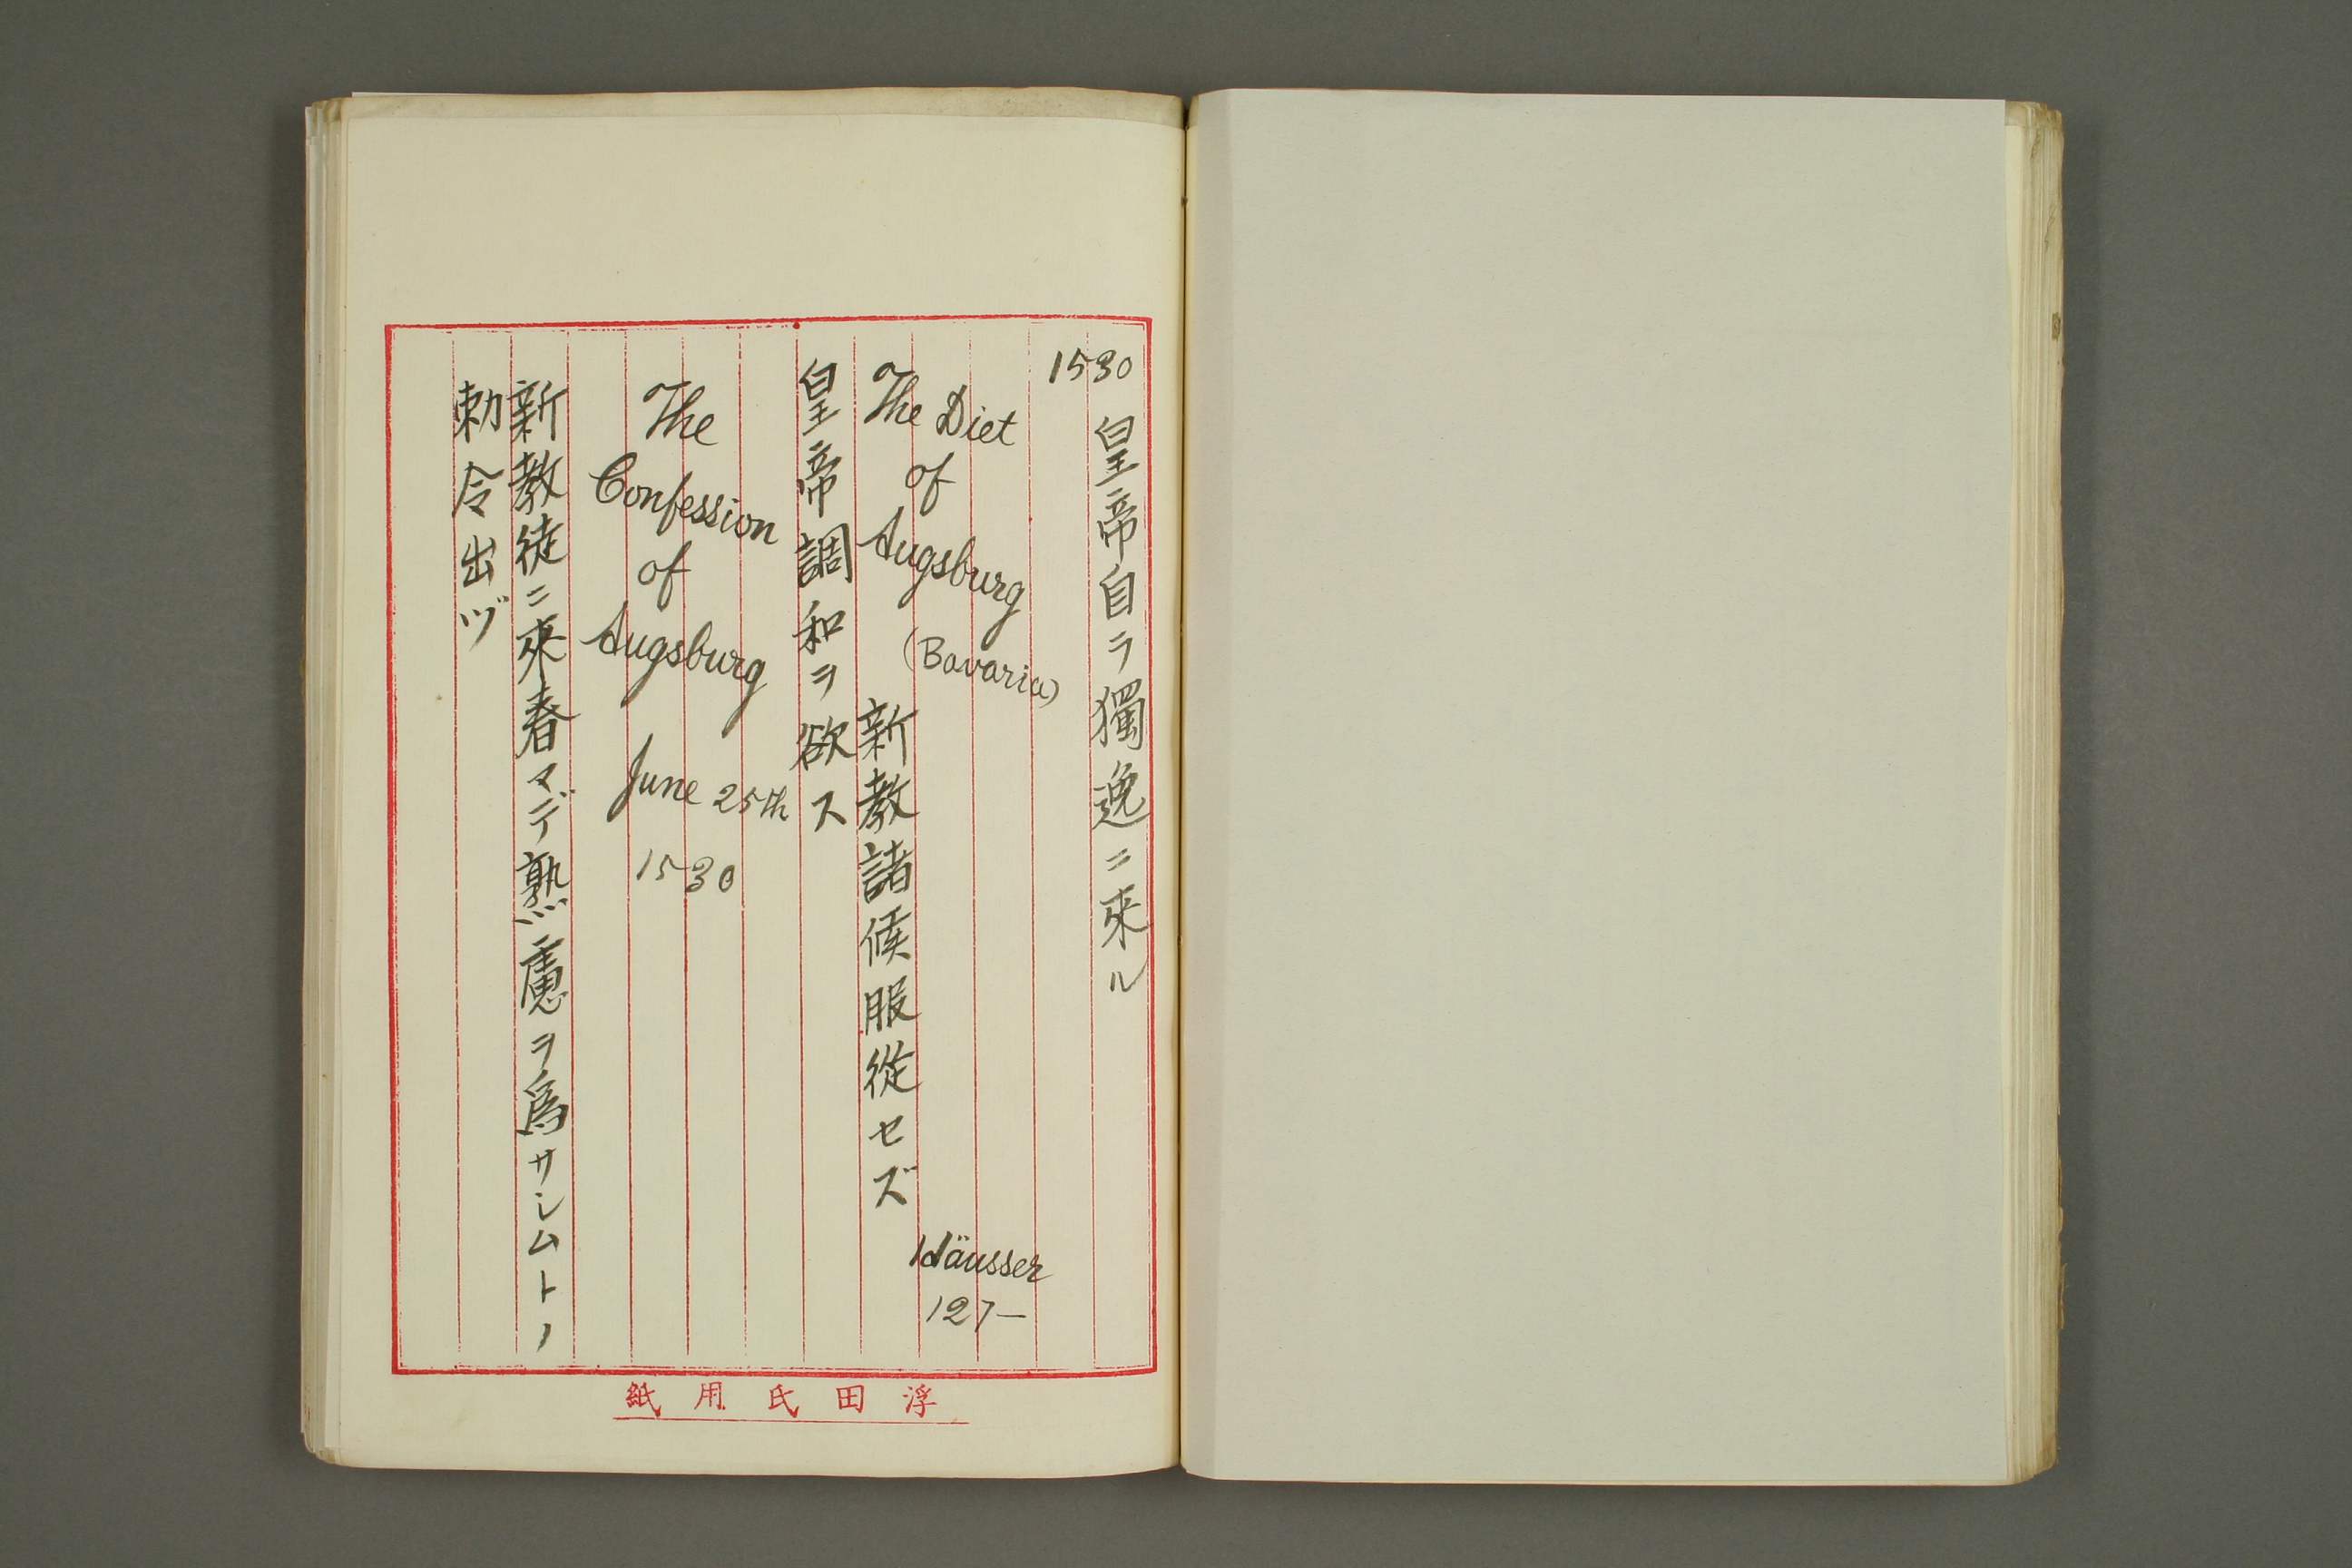 1530
皇帝自ラ獨逸ニ來ル
The Diet
of
Augsburg
(Bavaria)
Häusser
127—
新教諸候服從セズ
皇帝調和ヲ欲ス
The
Confession
of
Augsburg
June 25th
1530
新教徒ニ來春マデ熟慮ヲ爲サシムトノ
勅令出ヅ
紙用氏田浮